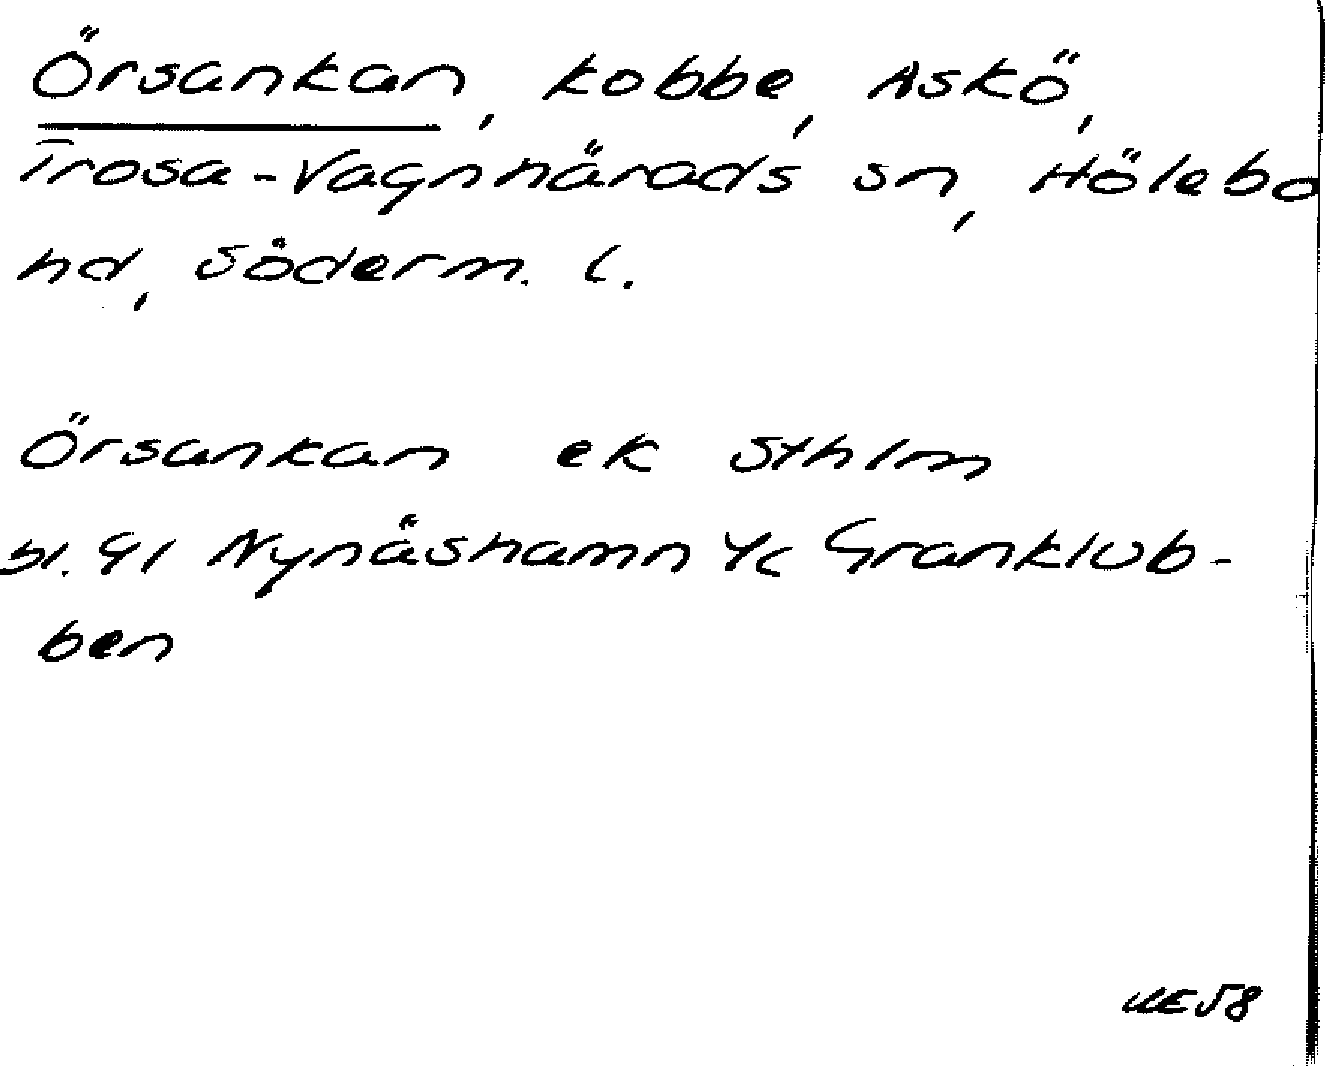 Örsankan, kobbe, Askö,
Trosa-Vagnhärads sn, Hölebo
hd, Söderm. l.
Örsankan ek Sthlm
bl. 91 Nynäshamn Yc Granklub-
ben